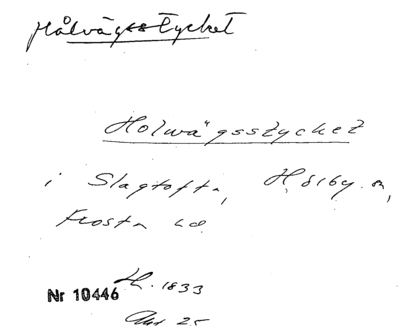 Hålvägsstycket
Holwägsstycket
i Slagtofta, Hörby sn,
Frosta hd
Nr 10446 LSk. 1833
Akt 25